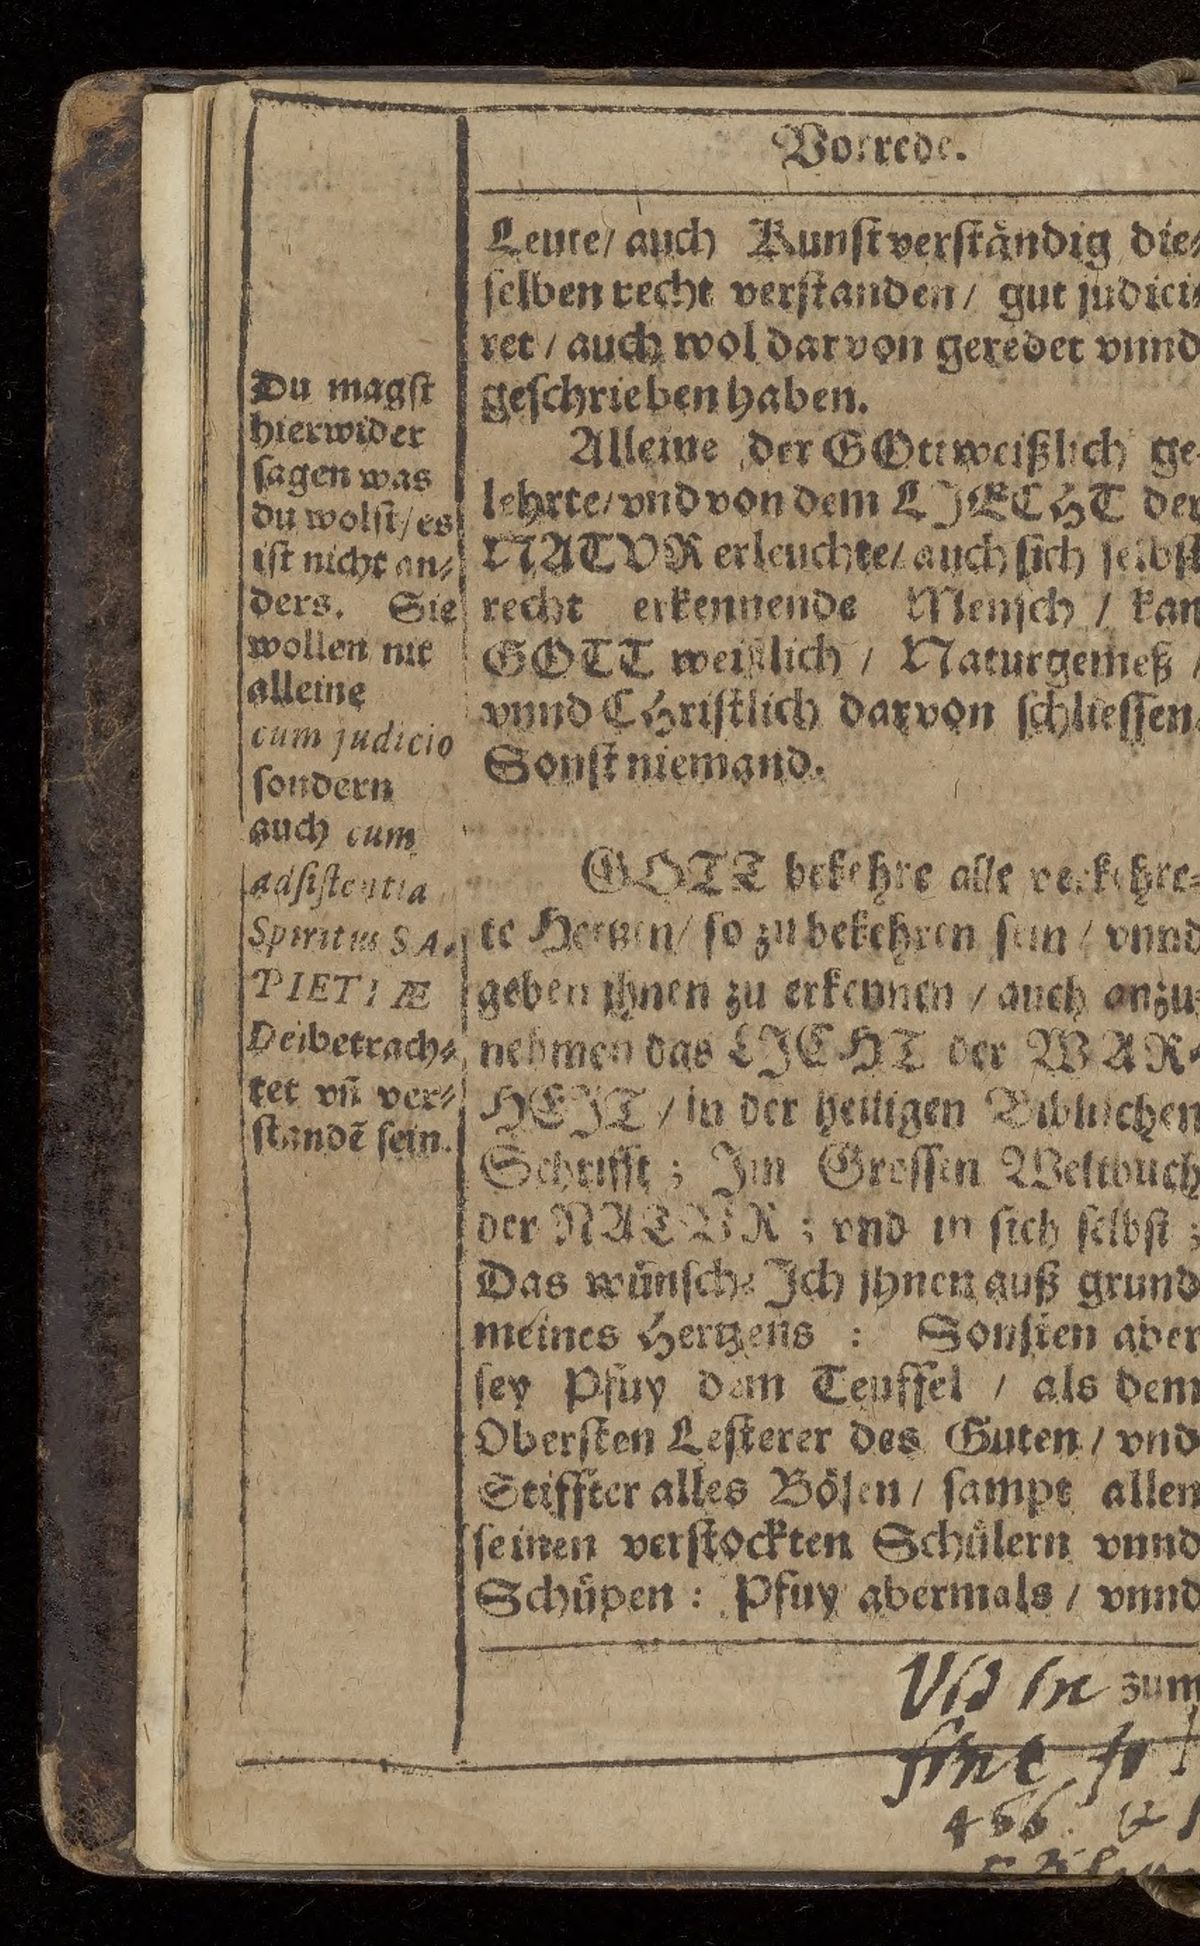 Vorrede.
Leute/ auch Kunstverståndig die⸗
selben recht verstanden/ gut judici⸗
ret / auch wol darvon geredet vnnd
geschrieben haben.
Alleine der GOttweißlich ge⸗
lehrte/ vnd von dem LJECHT der
NATVR erleuchte/ auch sich selbst
recht erkennende Mensch / kan
GOTT weißlich / Naturgemeß /
vnnd CHristlich darvon schliessen
Sonst niemand.
GOTT bekehre alle verkehre⸗
te Hertzen/ so zu bekehren sein / vnnd
geben jhnen zu erkennen / auch anzu⸗
nehmen das LJCHT der WAR⸗
HEJT / in der heiligen Biblischen
Schrifft ; Jm Grossen Weltbuch
der NATVR ; vnd in sich selbst ;
Das wůnsche Jch jhnen auß grund
meines Hertzens : Sonsten aber
sey Pfuy dem Teuffel / als dem
Obersten Lesterer des Guten / vnd
Stiffter alles Bösen / sampt allen
seinen verstockten Schůlern vnnd
Schůpen : Pfuy abermals / vnnd
zum
Du magst
hierwider
sagen was
du wolst/ es
ist nicht an⸗
ders. Sie
wollen nit
alleine
cum judicio
sondern
auch cum
adsistentia
Spiritus SA⸗
PIETIÆ
Dei betrach⸗
tet vñ ver⸗
standẽ sein.
Vid in
fine fo
466. &